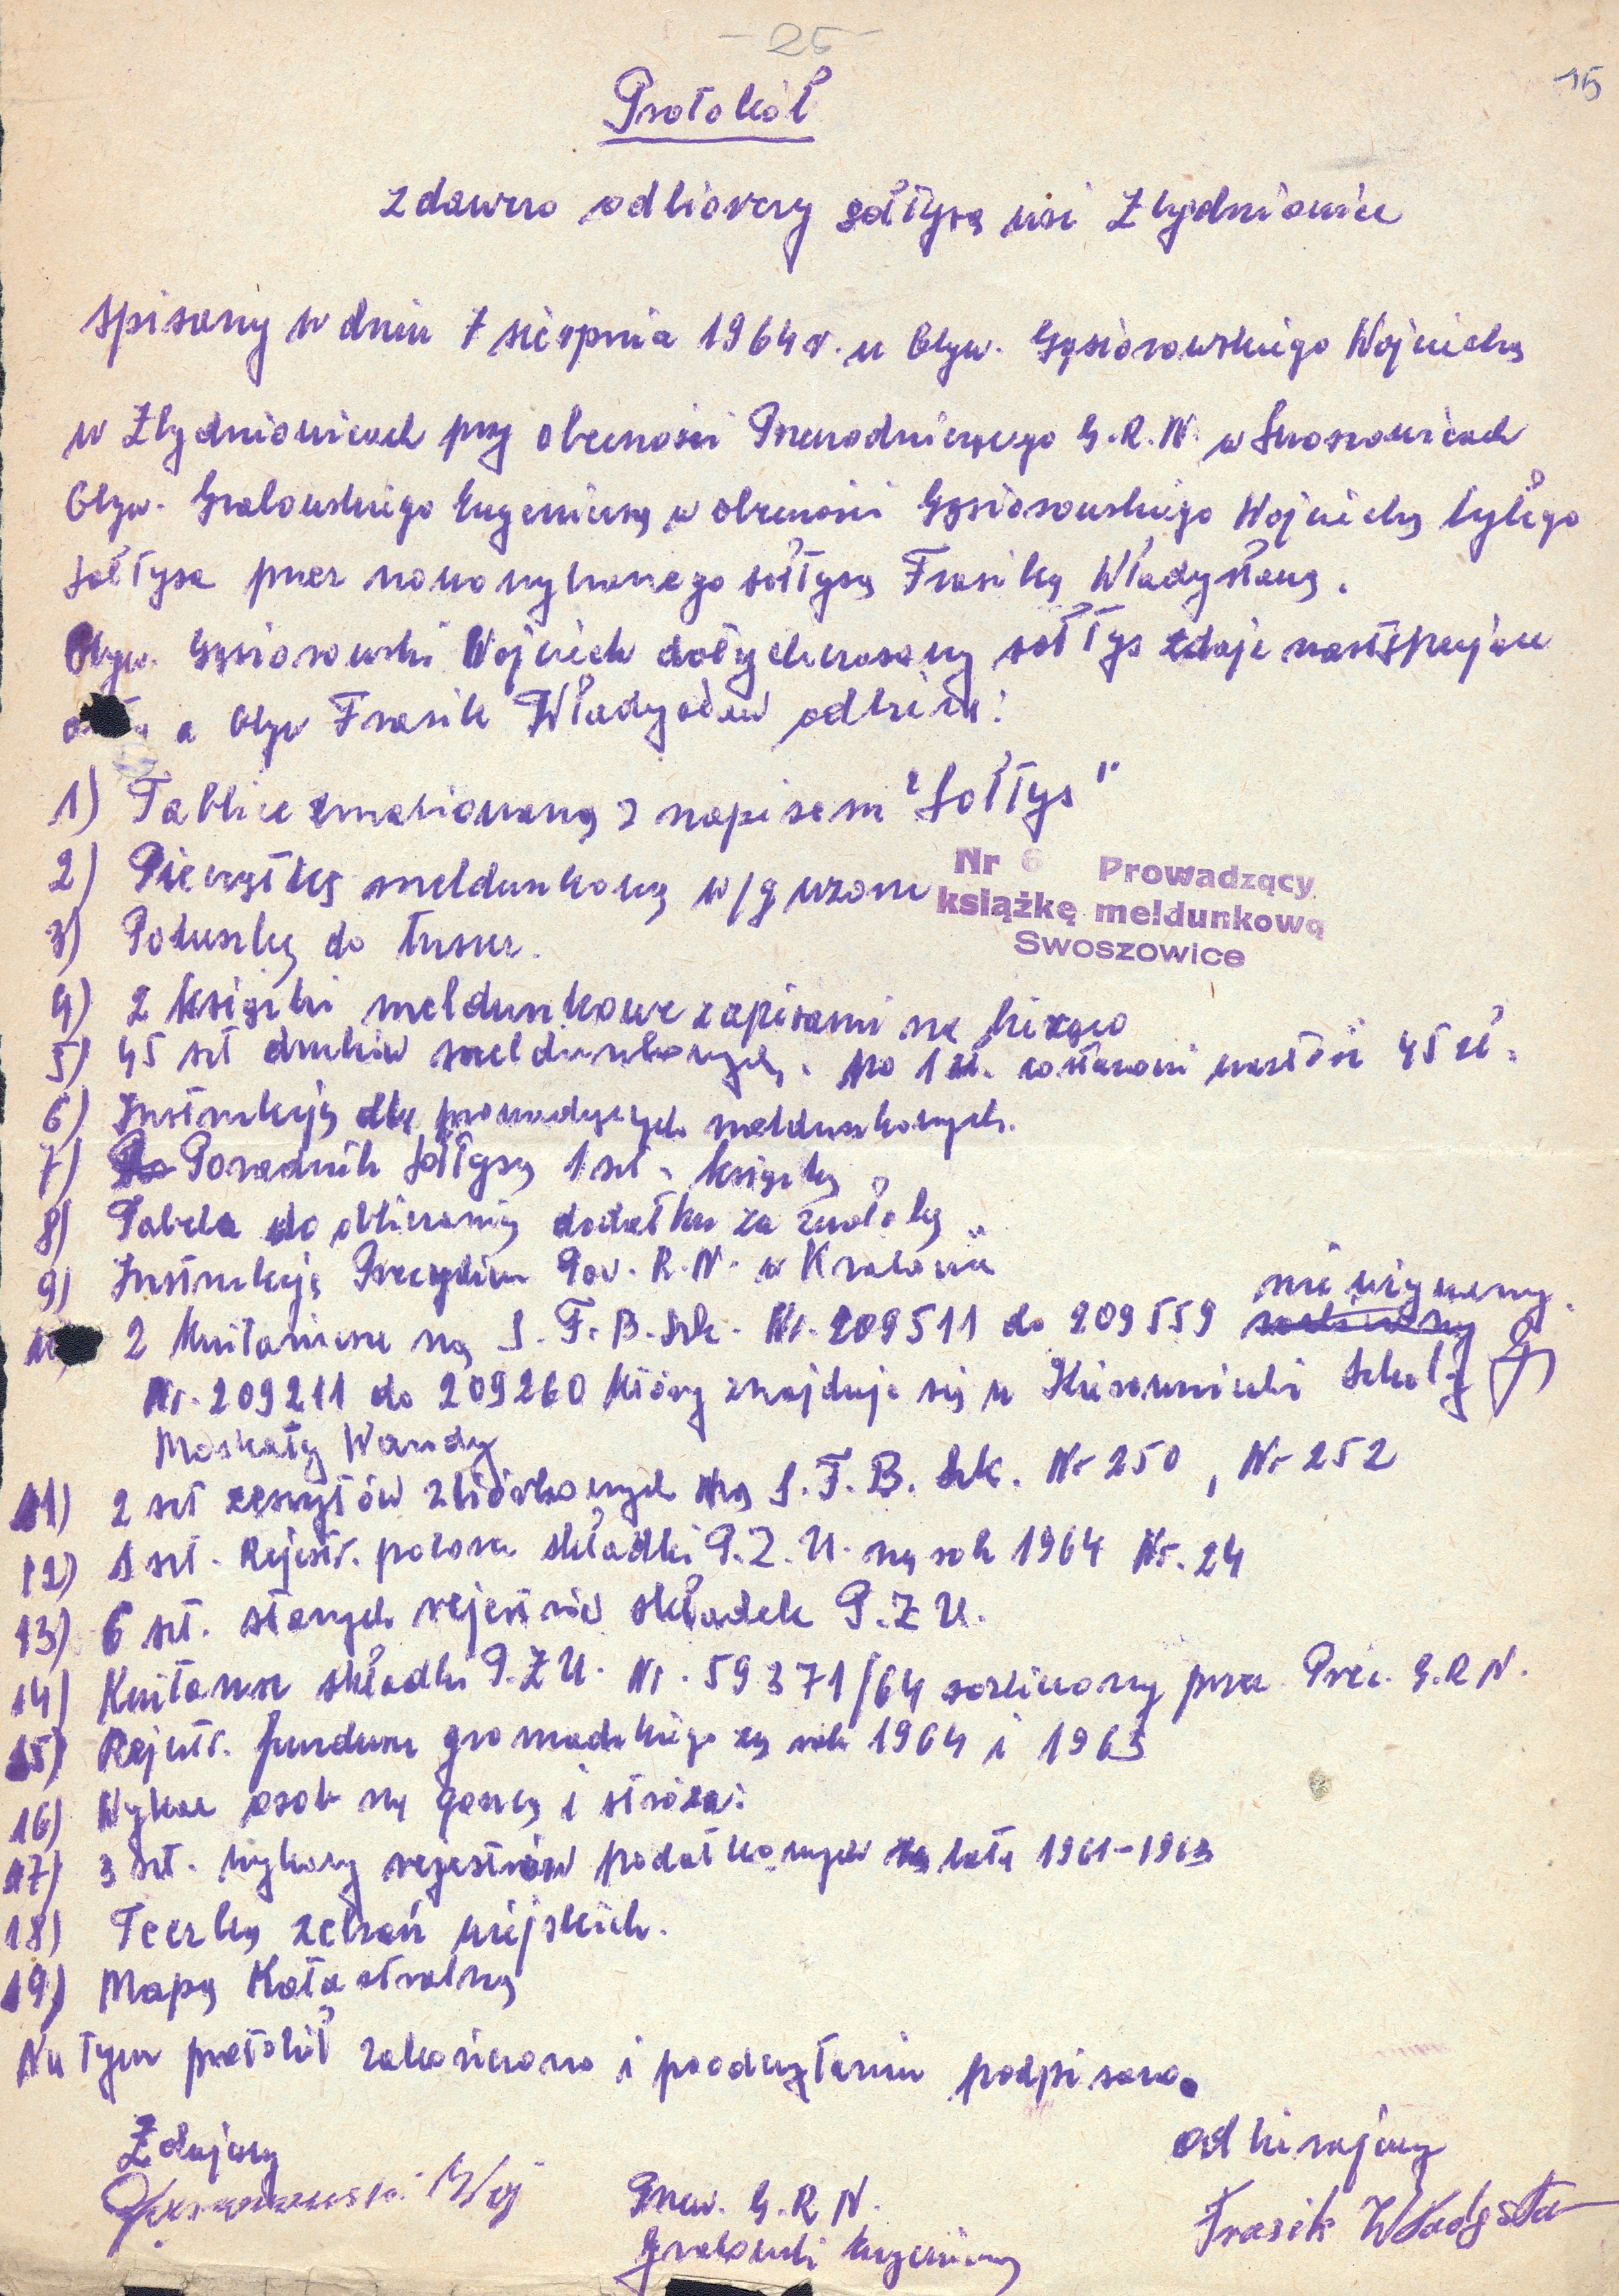 - 25 -
15
Protokół
zdawczo odbiorczy sołtysa wsi Zbydniowice
spisany w dniu 7 sierpnia 1964 r. u Obyw. Gąsiorowskiego Wojciecha
w Zbydniowicach przy obecności Przewodniczącego G.R.N. w Swoszowicach
Obyw. Grabowskiego Eugeniusza w obecności Gąsiorowskiego Wojciecha byłego
sołtysa przez nowowybranego sołtysa Frasika Władysława.
Obyw. Gąsiorowski Wojciech dotychczasowy sołtys zdaje następujące
a Obyw Frasik Władysław odbiera:
1) Tablice emaliowaną z napisem "Sołtys"
2) Pieczątkę meldunkową w/g wzoru
Nr 6 Prowadzący
książkę meldunkową
Swoszowice
3) Poduszkę do tuszu.
4) 2 książki meldunkowe zapisami na bieżąco
5) 45 szt druków meldunkowych. po 1 zł. wartości 45 zł.
6) Instrukcja dla prowadzących meldunkowych.
7) Poradnik sołtysa 1 szt. książka
8) Tabela do obliczania dodatku za zwłokę
9) Instrukcja Prezydium Pow. R.N. w Krakowie
nie używany.
10) 2 kwitariusze na S.F.B.Szk. Nr. 209511 do 209559
Nr. 209211 do 209260 który znajduje się u Kierowniczki Szkoły
Moskały Wandy
11) 2 szt zeszytów zbiórkowych na S.F.B. Szk. Nr 250, Nr 252
12) 1 szt. Rejestr. poboru składki P.Z.U. na rok 1964 Nr. 24
13) 6 szt. starych rejestrów składek P.Z.U.
14) Kwitariusz składki P.Z.U. Nr. 59371/64 rozliczony przez Prez. G.R.N.
15) Rejestr. funduszu gromadzkiego za rok 1964 i 1963
16) Wykaz osób na gońca i stróża:
17) 3 szt. wykazy rejestrów podatkowych za lata 1961-1963
18) Teczka zebrań wiejskich.
19) Mapa Katastralna
Na tym protokół zakończono i po odczytaniu podpisano.
Zdający
odbierający
Gąsiorowski Woj
Przew. G.R.N.
Frasik Władysław
Grabowski Eugeniusz